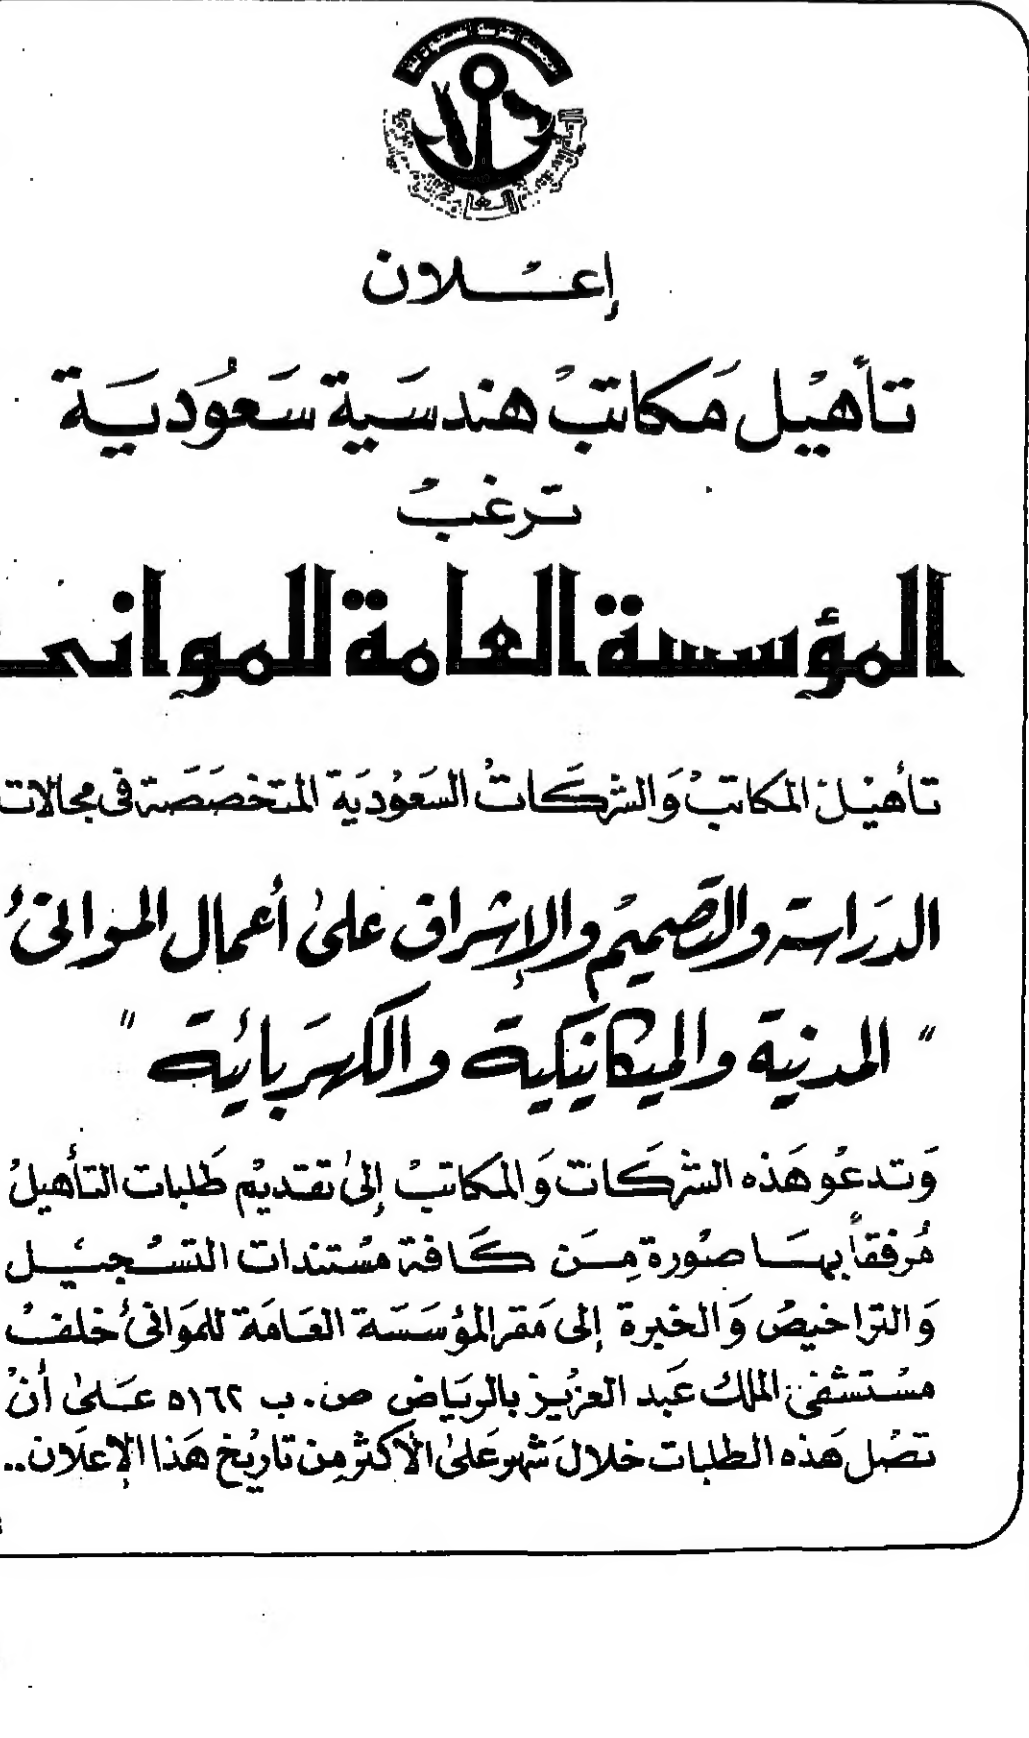 إعلان
تأهيل مكاتب هندسية سعودية
ترغب
المؤسسة العامة للموانى
تأهيل المكاتب والشركات السعودية المتخصصة فى مجالات
الدراسة والتصميم والإشراف على أعمال الموانئ
" المدنية والميكانيكية والكهربائية "
وتدعو هذه الشركات والمكاتب إلى تقديم طلبات التأهيل
مرفقاً بها صورة من كافة مستندات التسجيل
والتراخيص والخبرة إلى مقر المؤسسة العامة للموانئ خلف
مستشفى الملك عبد العزيز بالرياض ص.ب ٥١٦٢ على أن
تصل هذه الطلبات خلال شهر على الأكثر من تاريخ هذا الإعلان..